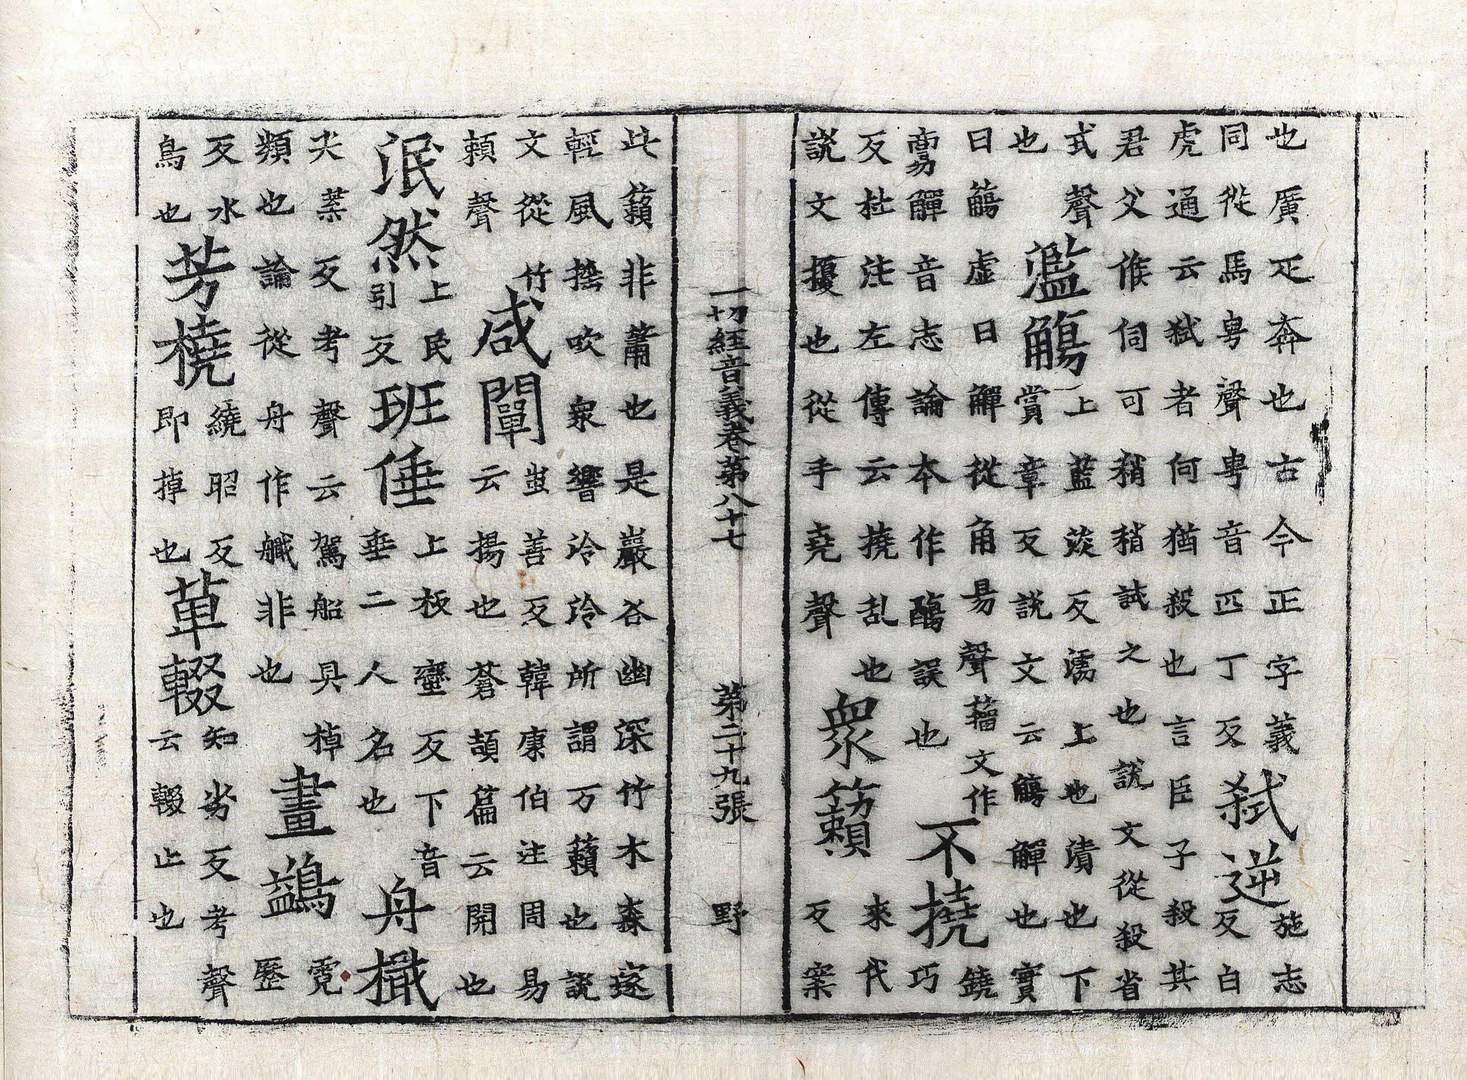 也廣疋奔也古今正字義同從馬甹聲甹音匹丁反弒逆施志反白
虎通云弒者何猶殺也言臣子殺其君父倏伺可稍稍試之也說文從殺省
式聲也濫觴上藍淡反濡上也漬也下賞章反說文云觴觶也實
曰觴虛曰觶從角昜聲籀文作觶音志論本作誤也不撓鐃巧
反杜注左傳云撓乱也說文擾也從手堯聲眾籟來代反案
一切經音義卷第八十七 第二十九張 野
此籟非蕭也是巖谷幽深竹木森邃輕風搖吹眾響泠泠所謂万籟也說
文從竹賴聲咸闡蚩善反韓康伯注周易云揚也蒼頡篇云開也
泯然上民引反班倕上板蠻反下音垂二人名也舟檝
尖葉反考聲云駕船具棹類也論從舟作艥非也畫鷁霓歷
反水鳥也芳橈繞昭反即棹也草輟知劣反考聲云輟止也